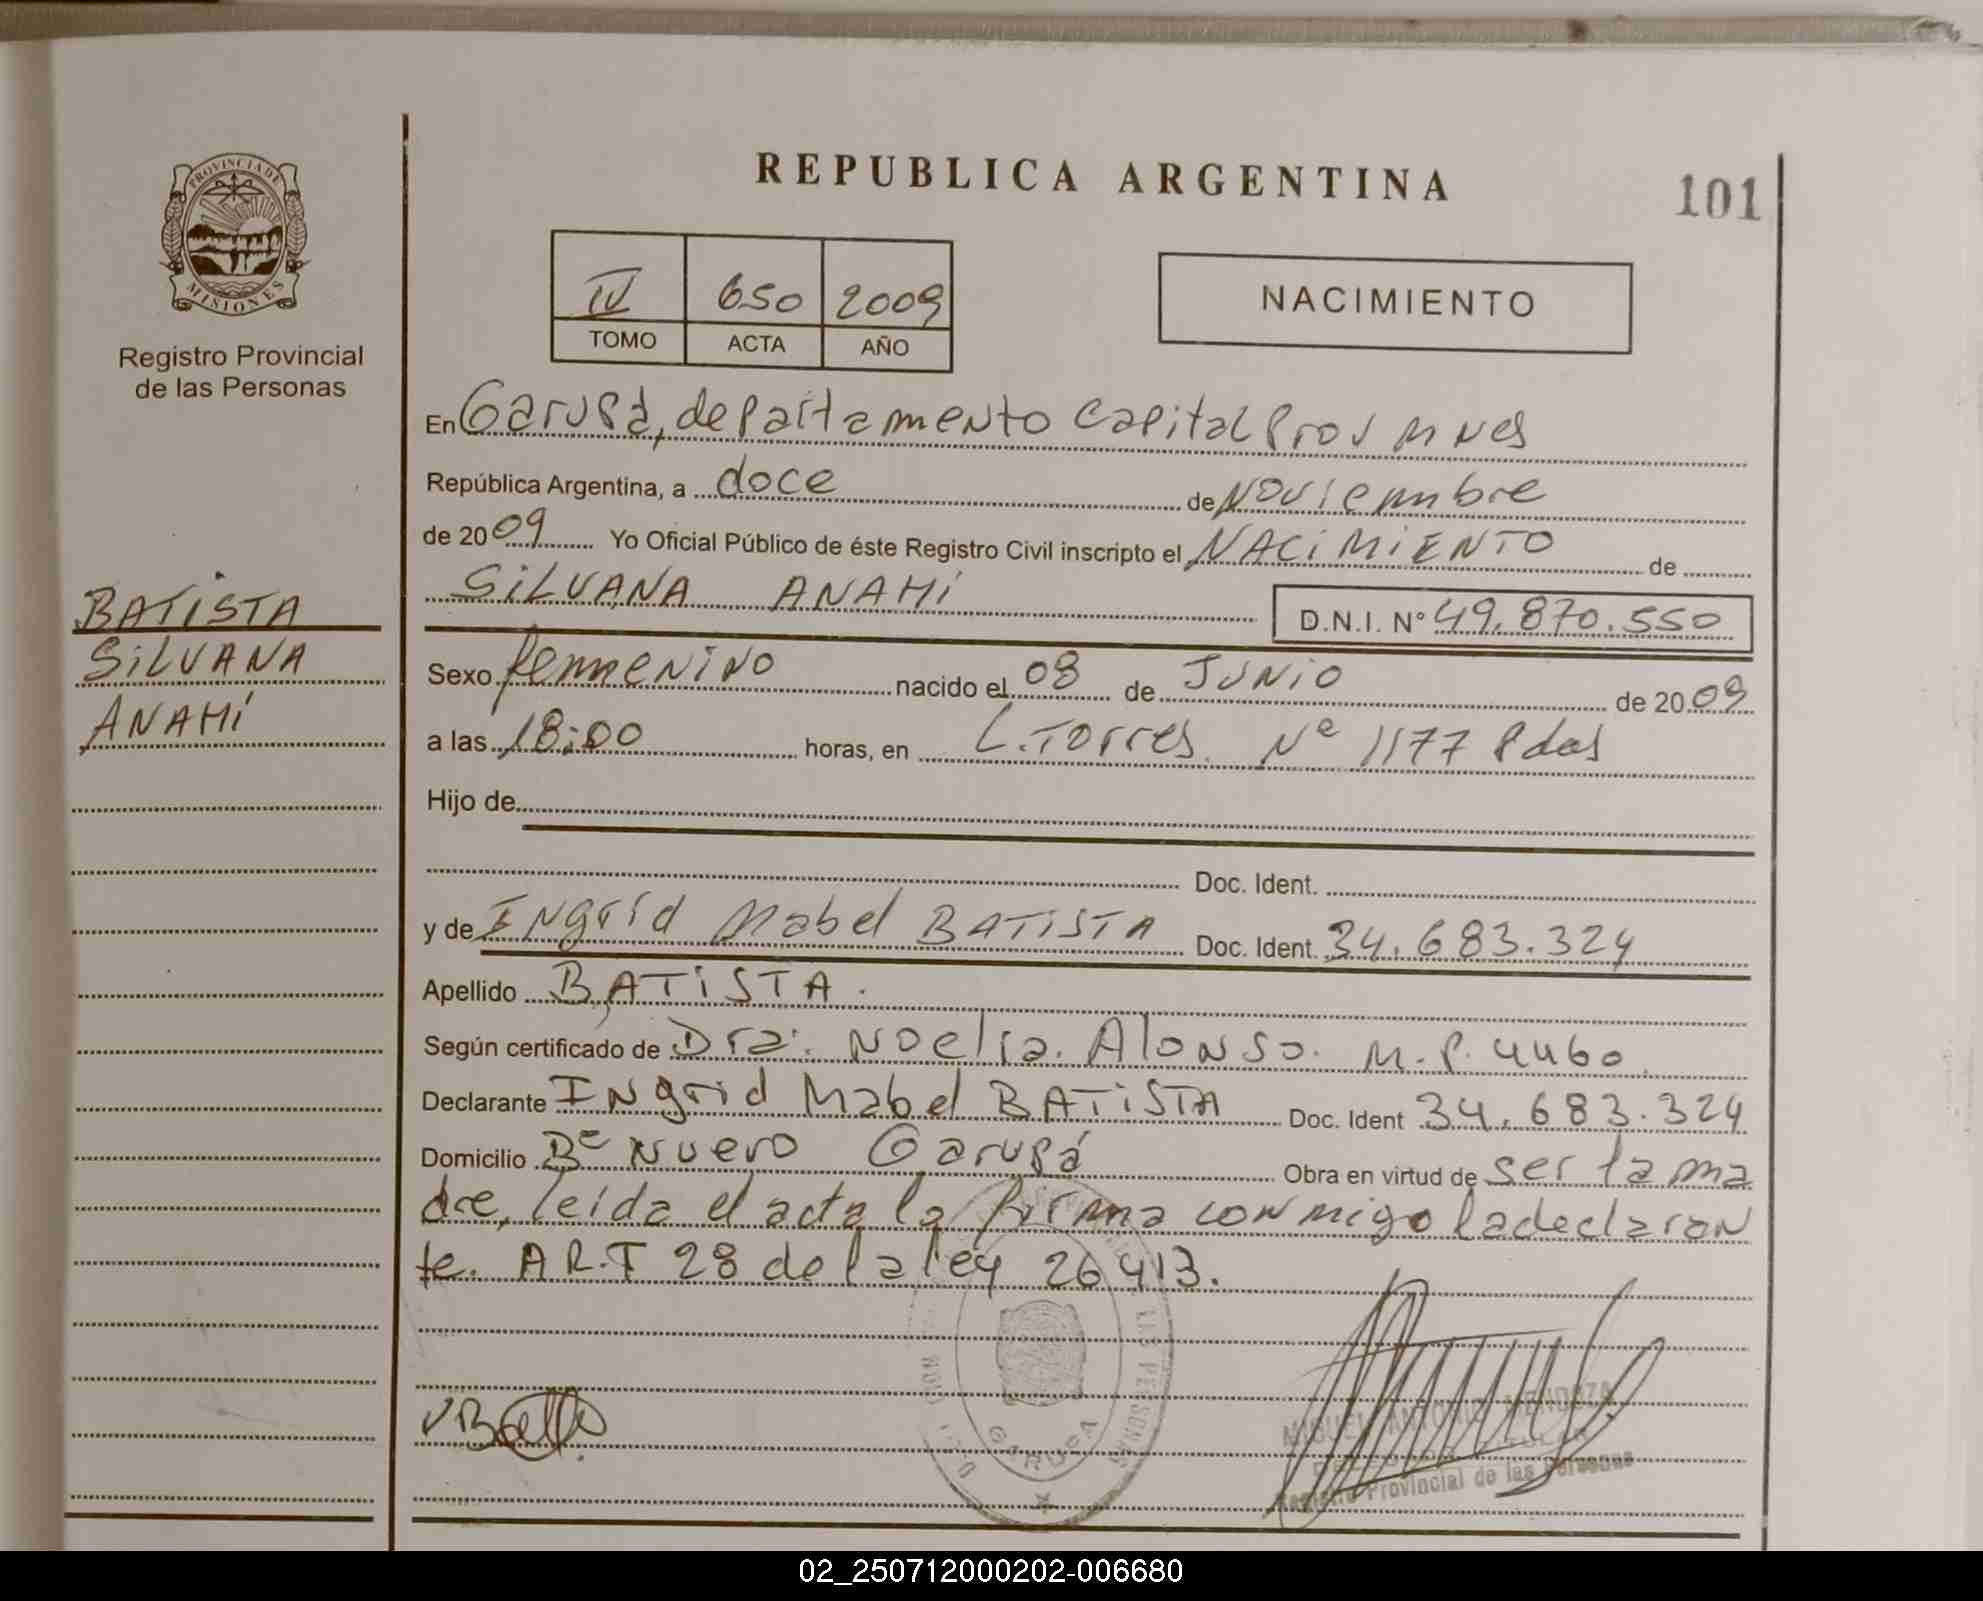 PROVINCIA DE
MISIONES
Registro Provincial
de las Personas
BATISTA
SILVANA
ANAHÍ
REPUBLICA ARGENTINA
101
IV 650 2009
TOMO ACTA AÑO
NACIMIENTO
En Garupá, departamento Capital Prov Mnes
República Argentina, a doce de Noviembre
de 2009 Yo Oficial Público de éste Registro Civil inscripto el NACIMIENTO de
SILVANA ANAHÍ D.N.I. Nº 49.870.550
Sexo femenino nacido el 08 de JUNIO de 2009
a las 18:00 horas, en L. Torres Nº 1177 Pdas
Hijo de
Doc. Ident.
y de Ingrid Mabel BATISTA Doc. Ident. 34.683.324
Apellido BATISTA.
Según certificado de Dra. Noelia Alonso. M.P. 4460
Declarante Ingrid Mabel BATISTA Doc. Ident 34.683.324
Domicilio Bº Nuevo Garupá Obra en virtud de ser la ma
dre, leída el acta la firma conmigo la declaran
te. ART 28 de la ley 26413.
LAS PERSONAS
GARUPA
MIGUEL ANTONIO MENDOZA
Registro Provincial de las Personas
02_250712000202-006680